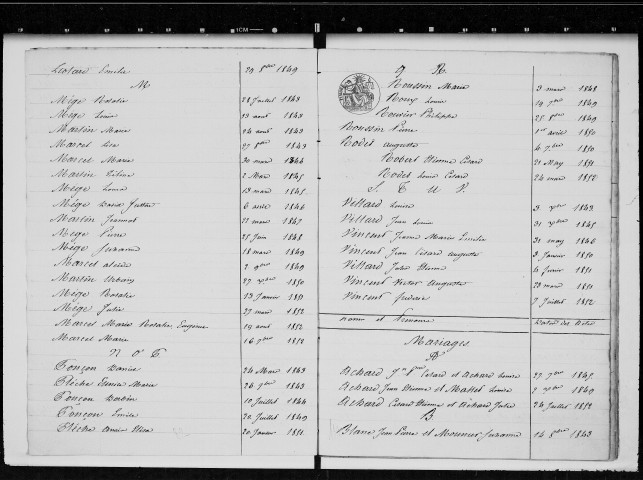 Leotard Emilie 29 8bre 1849
M
Mège Rosalie 28 Juillet 1843
Mège Louis 13 aout 1843
Martin Marie 24 aout 1843
Marcel 27 9bre 1843
Marcel Marie 30 mars 1844
Martin 2 Mars 1845
Mège Louisa 13 mars 1845
Mège David 6 avril 1846
Martin Jeannot 22 mars 1847
Mège Pierre 25 Juin 1848
Mège Suzanne 18 mars 1849
Marcel 2 9bre 1849
Martin Urbain 27 1850
Mège Rosalie 13 Janvier 1851
Mège Julie 27 mars 1852
Marcel Marie Rosalie Eugénie 19 aout 1852
Marcel Marie 16 7bre 1852
N O P
Ponçon 24 Mars 1843
Pleche Marie 26 7bre 1843
Ponçon 10 Juillet 1844
Ponçon Emilie 20 Juillet 1849
Pleche 20 Janvier 1851
Q R
Roussin Marie 3 mars 1848
Roux Louise 19 7bre 1849
Rouvier Philippe 25 8bre 1849
Roussin Pierre 1er avril 1850
Rodet Auguste 4 7bre 1850
Robert Etienne Césard 21 May 1851
Rodet Louis Césard 24 mars 1852
S T U V
Villard Louise 3 1843
Villard Jean Louis 31 1845
Vincent Jeanne Marie Emilie 31 may 1846
Vincent Jean Césard Auguste 3 Janvier 1850
Villard Jules Etienne 4 fevrier 1851
Vincent Victor Auguste 28 mars 1851
Vincent 7 Juillet 1852
Noms et Prénoms Dates des Actes
Mariages
A
Achard Césard et Achard Louise 27 1845
Achard Jean Etienne et Mallet Louise 2 1849
Achard Césard Etienne et Achard Julie 24 Juillet 1852
B
Blanc Jean Pierre et Mounier Suzanne 14 8bre 1843